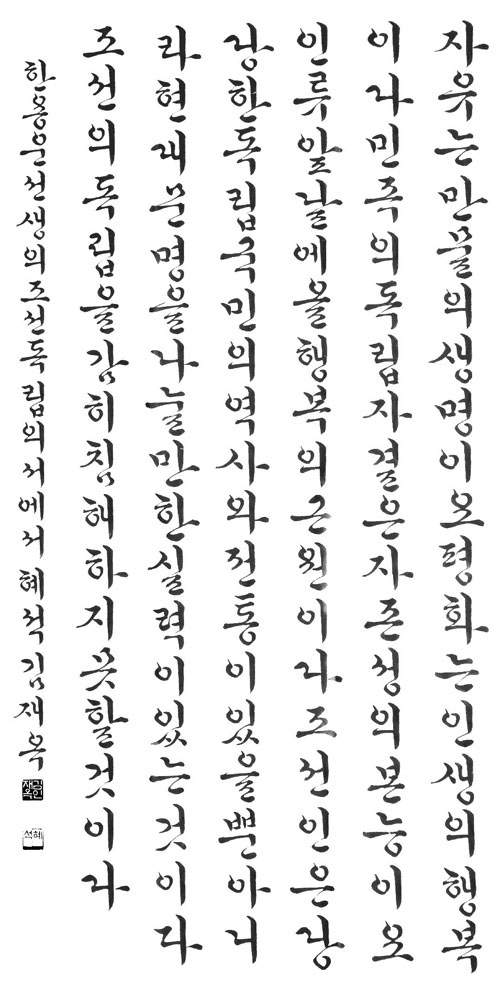 자유는만물의생명이오평화는인생의행복
이라민족의독립자결은자존성의본능이오
인류앞날에올행복의근원이라조선인은당
당한독립국민의역사와전통이있을뿐아니
라현대문명을나눌만한실력이있는것이다
조선의독립을감히침해하지못할것이라
한용운선생의조선독립의서에서 혜석 김재옥